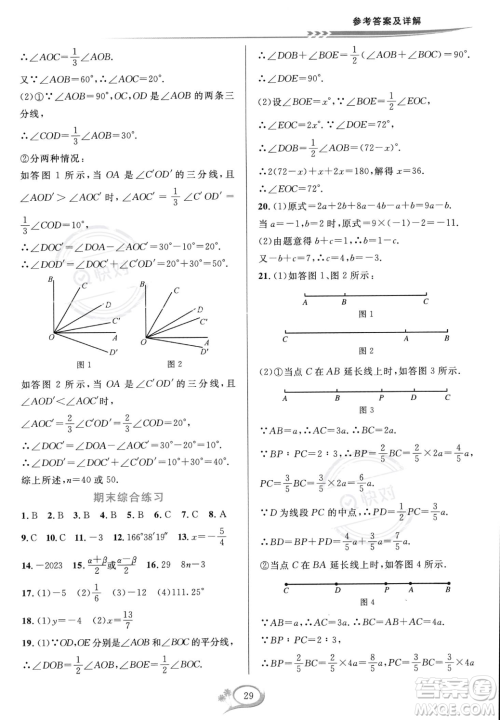 参考答案及详解
∴∠AOC=1/3∠AOB.
又∵∠AOB=60°,∴∠AOC=20°.
(2)①∵∠AOB=90°,OC,OD是∠AOB的两条三
分线,
∴∠COD=1/3∠AOB=30°.
②分两种情况:
如答图 1 所示,当 OA 是∠C′OD′的三分线,且
∠AOD′>∠AOC′时,∠AOC′=1/3∠C′OD′=
1/3∠COD=10°,
∴∠DOC′=∠DOA−∠AOC′=30°−10°=20°,
∴∠DOD′=∠DOC′+∠C′OD′=20°+30°=50°;
B
D
C
C′
O
A
D′
图 1
B
C
O
A
D′
图 2
如答图 2 所示,当 OA 是∠C′OD′的三分线,且
∠AOD′<∠AOC′时,
∠AOC′=2/3∠C′OD′=2/3∠COD=20°,
∴∠DOC′=∠DOA−∠AOC′=30°−20°=10°,
∴∠DOD′=∠DOC′+∠C′OD′=10°+30°=40°.
综上所述,n=40 或 50.
期末综合练习
1.B 2.B 3.B 4.C 5.B 6.C 7.C 8.A
9.C 10.C 11.−5 12.166°38′19″ 13.4
14.−2023 15.α+β/2或α−β/2 16.29 8n−3
17.(1)−5 (2)−6 (3)−4 (4)111.25°
18.(1)x=1 (2)x=13/7
19.(1)∵OD,OE分别是∠AOB和∠BOC的平分线,
∴∠DOB=1/2∠AOB,∠BOE=1/2∠BOC,
∴∠DOB+∠BOE=1/2(∠AOB+∠BOC)=90°,
∴∠DOE=90°.
(2)设∠EOC=2x°,则∠BOE=x°.
∵∠DOE=72°,∴∠DOB=72°−x°.
∵OD平分∠AOB,∴∠AOB=2∠DOB,
∴2(72−x)+x+2x=180,解得 x=36.
∴∠EOC=72°.
20.(1)原式=2a+2b+2a−4a+8a−b=8a+b.
当a=−1,b=−1时,原式=8×(−1)−1=−9.
(2)由题意得b+c=1,∴b+c=1.
又−b=7,∴b=−7,∴c=8.
21.(1)如答图 1、图 2 所示:
A B C
图 1
C A B
图 2
(2)①当点 C 在 AB 延长线上时,如答图 3 所示.
图 3
∵AB=a,∴AC=3a,∴BC=2a.
∵BP∶PC=2∶3,∴BP=2/5BC=2/5×2a=4/5a,
∴PC=3/5BC=3/5×2a=6/5a.
∵D为线段PC的中点,∴PD=1/2PC=3/5a,
∴BD=BP+PD=4/5a+3/5a=7/5a.
图 4
∵AB=a,∴AC=3a,∴BC=4a.
29